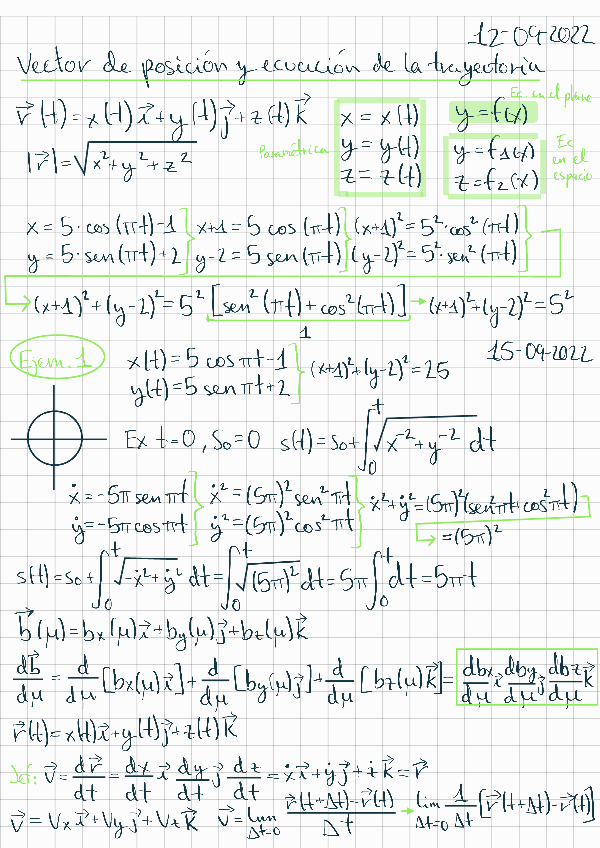 12-09-2022
Vector de posición y ecuación de la trayectoria
r⃗(t)=x(t)i⃗+y(t)j⃗+z(t)k⃗
|r⃗|=√(x²+y²+z²)
Paramétrica
x=x(t)
y=y(t)
z=z(t)
Ec. en el plano
y=f(x)
y=f₁(x)
z=f₂(x)
Ec en el espacio
x=5·cos(πt)-1 } x+1=5 cos(πt) } (x+1)²=5²·cos²(πt) }
y=5·sen(πt)+2 } y-2=5 sen(πt) } (y-2)²=5²·sen²(πt) }
→(x+1)²+(y-2)²=5²[sen²(πt)+cos²(πt)]→(x+1)²+(y-2)²=5²
1
Ejem. 1
x(t)=5 cos πt-1 } (x+1)²+(y-2)²=25
y(t)=5 sen πt+2 }
15-09-2022
Ex t=0, S₀=0 s(t)=s₀+∫₀ᵗ√(x⁻²+y⁻²) dt
ẋ=-5π sen πt } ẋ²=(5π)² sen² πt } ẋ²+ẏ²=(5π)²(sen²πt+cos²πt)
ẏ=-5π cos πt } ẏ²=(5π)² cos² πt } → =(5π)²
s(t)=s₀+∫₀ᵗ√(-ẋ²+ẏ²) dt=∫₀ᵗ√(5π)² dt=5π∫₀ᵗdt=5πt
b⃗(μ)=bx(μ)i⃗+by(μ)j⃗+bz(μ)k⃗
db⃗/dμ=d/dμ[bx(μ)i⃗]+d/dμ[by(μ)j⃗]+d/dμ[bz(μ)k⃗]=dbx/dμ i⃗ dby/dμ j⃗ dbz/dμ k⃗
r⃗(t)=x(t)i⃗+y(t)j⃗+z(t)k⃗
v⃗=dr⃗/dt=dx/dt i⃗ dy/dt j⃗ dz/dt=ẋi⃗+ẏj⃗+żk⃗=r⃗
v⃗=Vxi⃗+Vyj⃗+Vzk⃗ v⃗=lim Δt→0 (r⃗(t+Δt)-r⃗(t))/Δt → lim Δt→0 1/Δt[r⃗(t+Δt)-r⃗(t)]